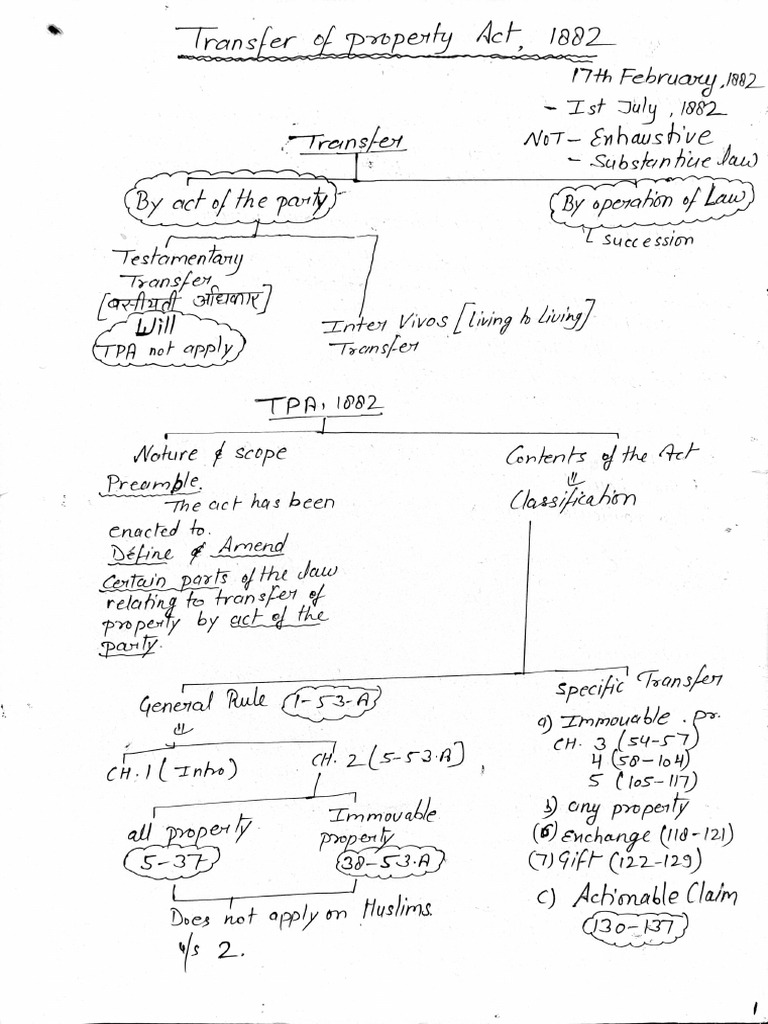 Transfer of property Act, 1882
17th February, 1882
- Ist July, 1882
NOT - Exhaustive
- Substantive law
Transfer
By act of the party
By operation of Law
Succession
Testamentary
Transfer
[वसीयती अधिकार]
Will
TPA not apply
Inter Vivos [living to living]
Transfer
TPA, 1882
Nature & scope
Preamble.
The act has been
enacted to.
Define & Amend
Certain parts of the law
relating to transfer of
property by act of the
party.
Contents of the Act
⇓
Classification
General Rule 1-53-A
⇓
CH. 1 (Intro)
CH. 2 (5-53.A)
all property
5-37
Immovable
property
38-53.A
Does not apply on Muslims.
u/s 2.
Specific Transfer
a) Immovable. pr.
CH. 3 (54-57)
4 (58-104)
5 (105-117)
b) any property
(6) Exchange (118-121)
(7) Gift (122-129)
c) Actionable Claim
130-137
1